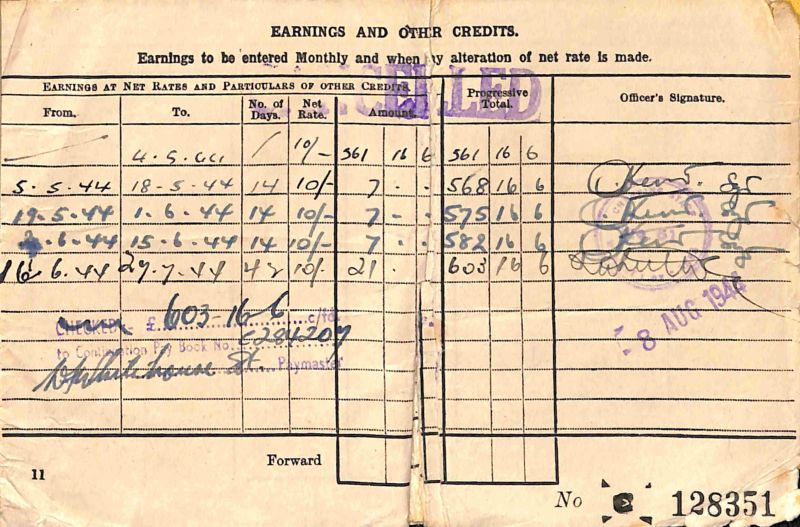 EARNINGS AND OTHER CREDITS.
Earnings to be entered Monthly and when any alteration of net rate is made.
CANCELLED
EARNINGS AT NET RATES AND PARTICULARS OF OTHER CREDITS.
From. To. No. of Days. Net Rate. Amount. Progressive Total. Officer's Signature.
4.5.44 / 10/- 561 16 6 561 16 6
5.5.44 18.5.44 14 10/- 7 - - 568 16 6 Kent. Sgt
19.5.44 1.6.44 14 10/- 7 - - 575 16 6 Kent Sgt
2.6.44 15.6.44 14 10/- 7 - - 582 16 6 Kent Sgt
16.6.44 27.7.44 42 10/- 21 - 603 16 6
CHECKED - £ 603-16-6 c/fd.
to Continuation Pay Book No. C284207
Whitehouse Lt. Paymaster
- 8 AUG 1944
Forward
11
No 128351